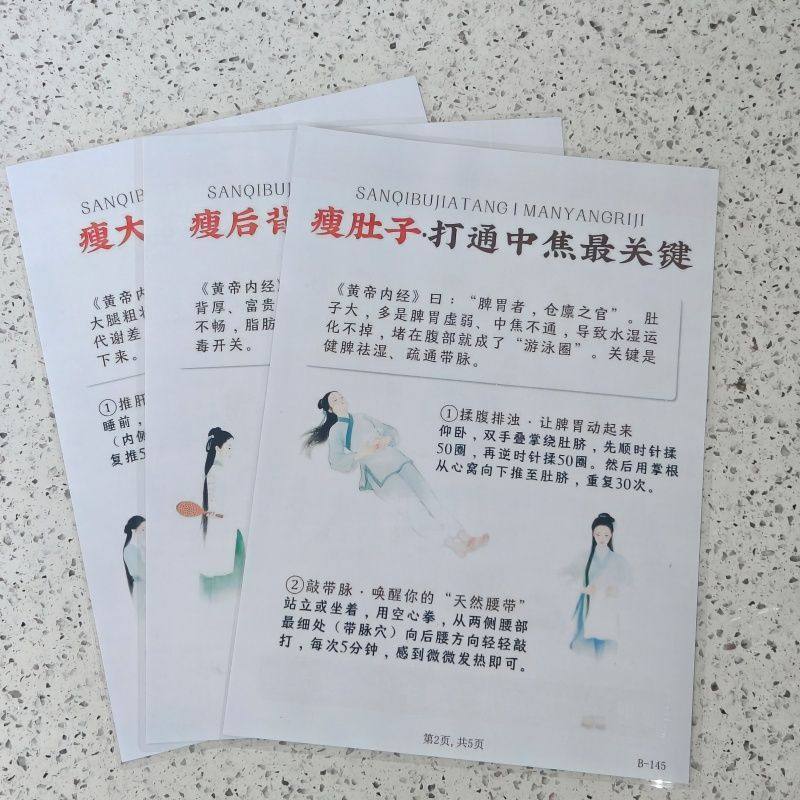 SANQIBUJIATANG | MANYANGRIJI
瘦肚子·打通中焦最关键
《黄帝内经》曰：“脾胃者，仓廪之官”。肚
子大，多是脾胃虚弱、中焦不通，导致水湿运
化不掉，堵在腹部就成了“游泳圈”。关键是
健脾祛湿、疏通带脉。
①揉腹排浊·让脾胃动起来
仰卧，双手叠掌绕肚脐，先顺时针揉
50圈，再逆时针揉50圈。然后用掌根
从心窝向下推至肚脐，重复30次。
②敲带脉·唤醒你的“天然腰带”
站立或坐着，用空心拳，从两侧腰部
最细处（带脉穴）向后腰方向轻轻敲
打，每次5分钟，感到微微发热即可。
第2页,共5页
B-145
SANQIBU
瘦后背
《黄帝内经》
背厚、富贵
不畅，脂肪
毒开关。
SANQ
瘦大
《黄帝内
大腿粗壮
代谢差
下来。
①推肝
睡前，
（内侧
复推5